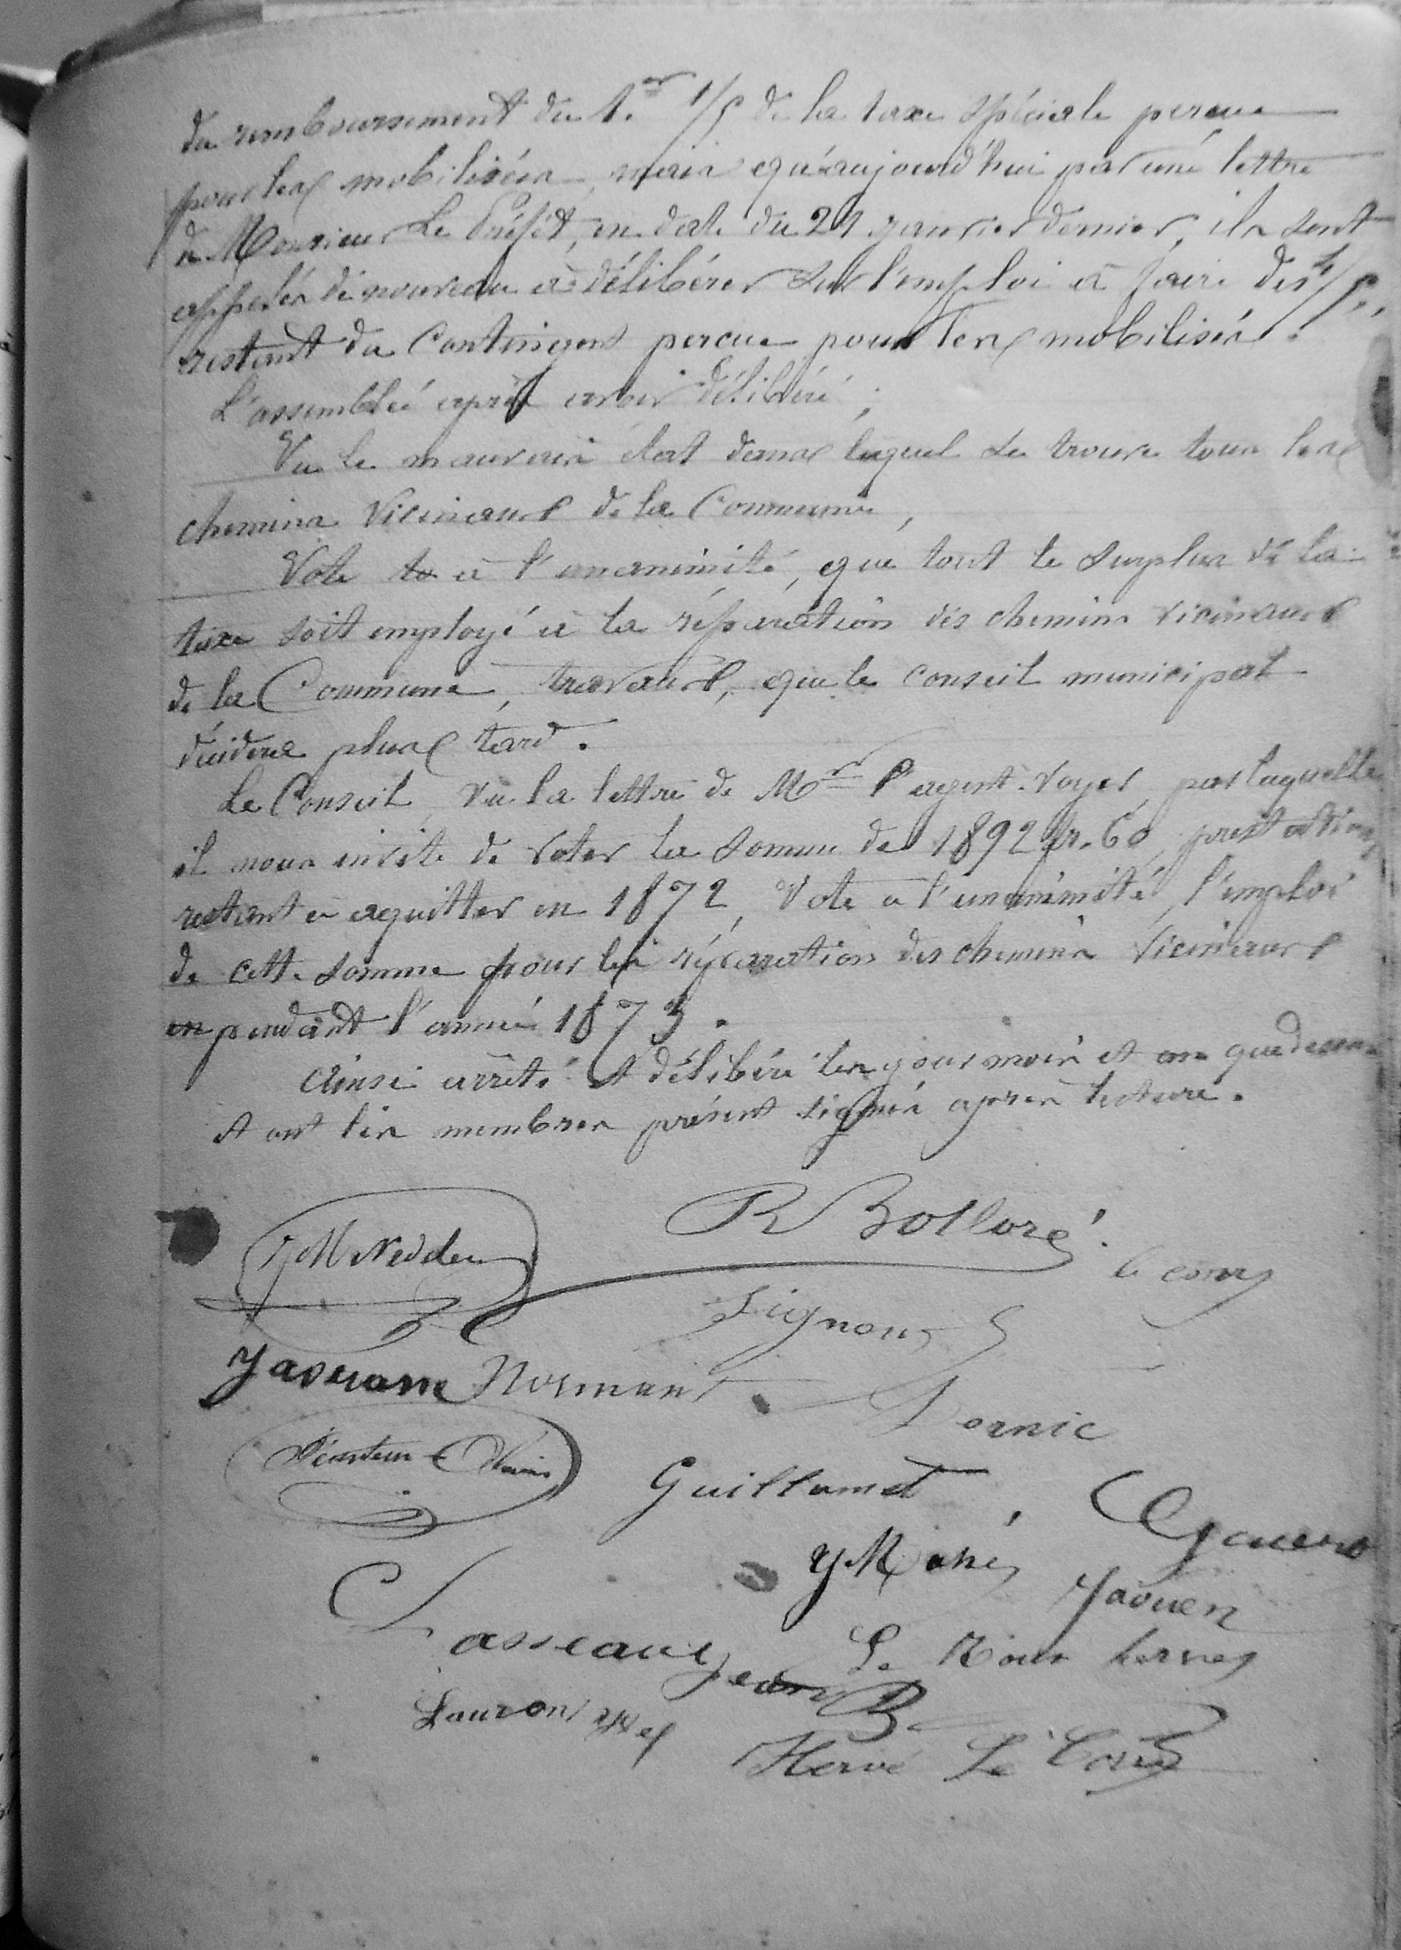 du remboursement du 1.er 1/5 de la taxe spéciale percue
pour les mobilisés, mais qu'aujourd'hui par une lettre
de Monsieur Le Préfet, en date du 21 janvier dernier, ils sont
appelés de nouveau à délibérer sur l'emploi à faire des 4/5,
restant du Contingent percue pour les mobilisés.
L'assemblée après avoir délibéré ;
Vu le mauvais état dans lequel se trouve tous les
chemins Vicinaux de la Commune,
Vote à l'unanimité, que tout le surplus de la
taxe soit employé à la réparation des chemins vicinaux
de la Commune, travaux, que le conseil municipal
décidera plus tard.
Le Conseil, Vu la lettre de Mr l'agent-Voyer, par laquelle
il nous invite de voter la somme de 1892 fr. 60, prestations
restant à aquitter en 1872, Vote à l'unanimité, l'emploi
de cette somme pour la réparation des chemins Vicinaux
pendant l'année 1873.
Ainsi arrêté et délibéré les jour mois et an que dessus
et ont les membres présent signés après lecture.
R Bolloré
JM Nedelec
Le corre
Signour
Normant
Pornic
Guillamet
Y Mahé
Yaouen
Lasseau Jean
Le Roux herve
Lauron
Hervé Le Corre